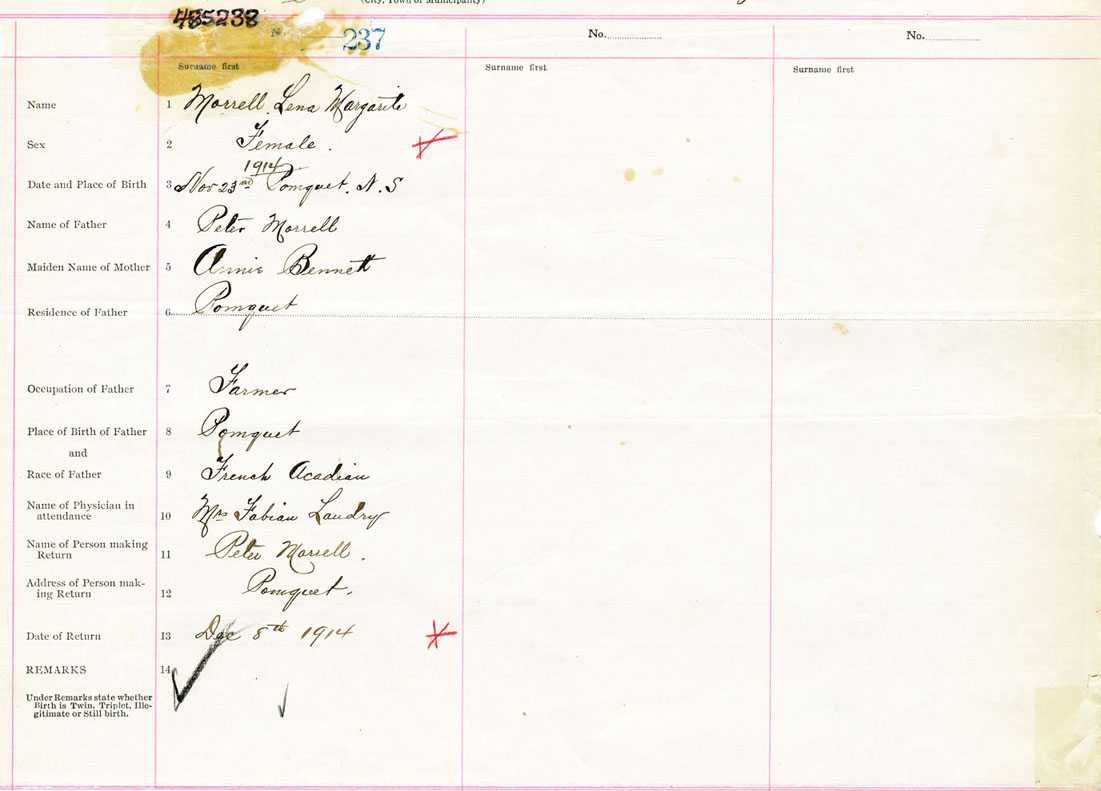 (City, Town or Municipality)
485238
No. 237 No. No.
Surname first Surname first Surname first
Name 1 Morrell, Lena Margarite
Sex 2 Female.
1914
Date and Place of Birth 3 Nov 23rd Pomquet. N.S
Name of Father 4 Peter Morrell
Maiden Name of Mother 5 Annie Bennett
Residence of Father 6 Pomquet
Occupation of Father 7 Farmer
Place of Birth of Father 8 Pomquet
and
Race of Father 9 French Acadian
Name of Physician in
attendance 10 Mrs Fabian Landry
Name of Person making
Return 11 Peter Morrell.
Address of Person mak-
ing Return 12 Pomquet.
Date of Return 13 Dec 8th 1914
REMARKS 14
Under Remarks state whether
Birth is Twin, Triplet, Ille-
gitimate or Still birth.